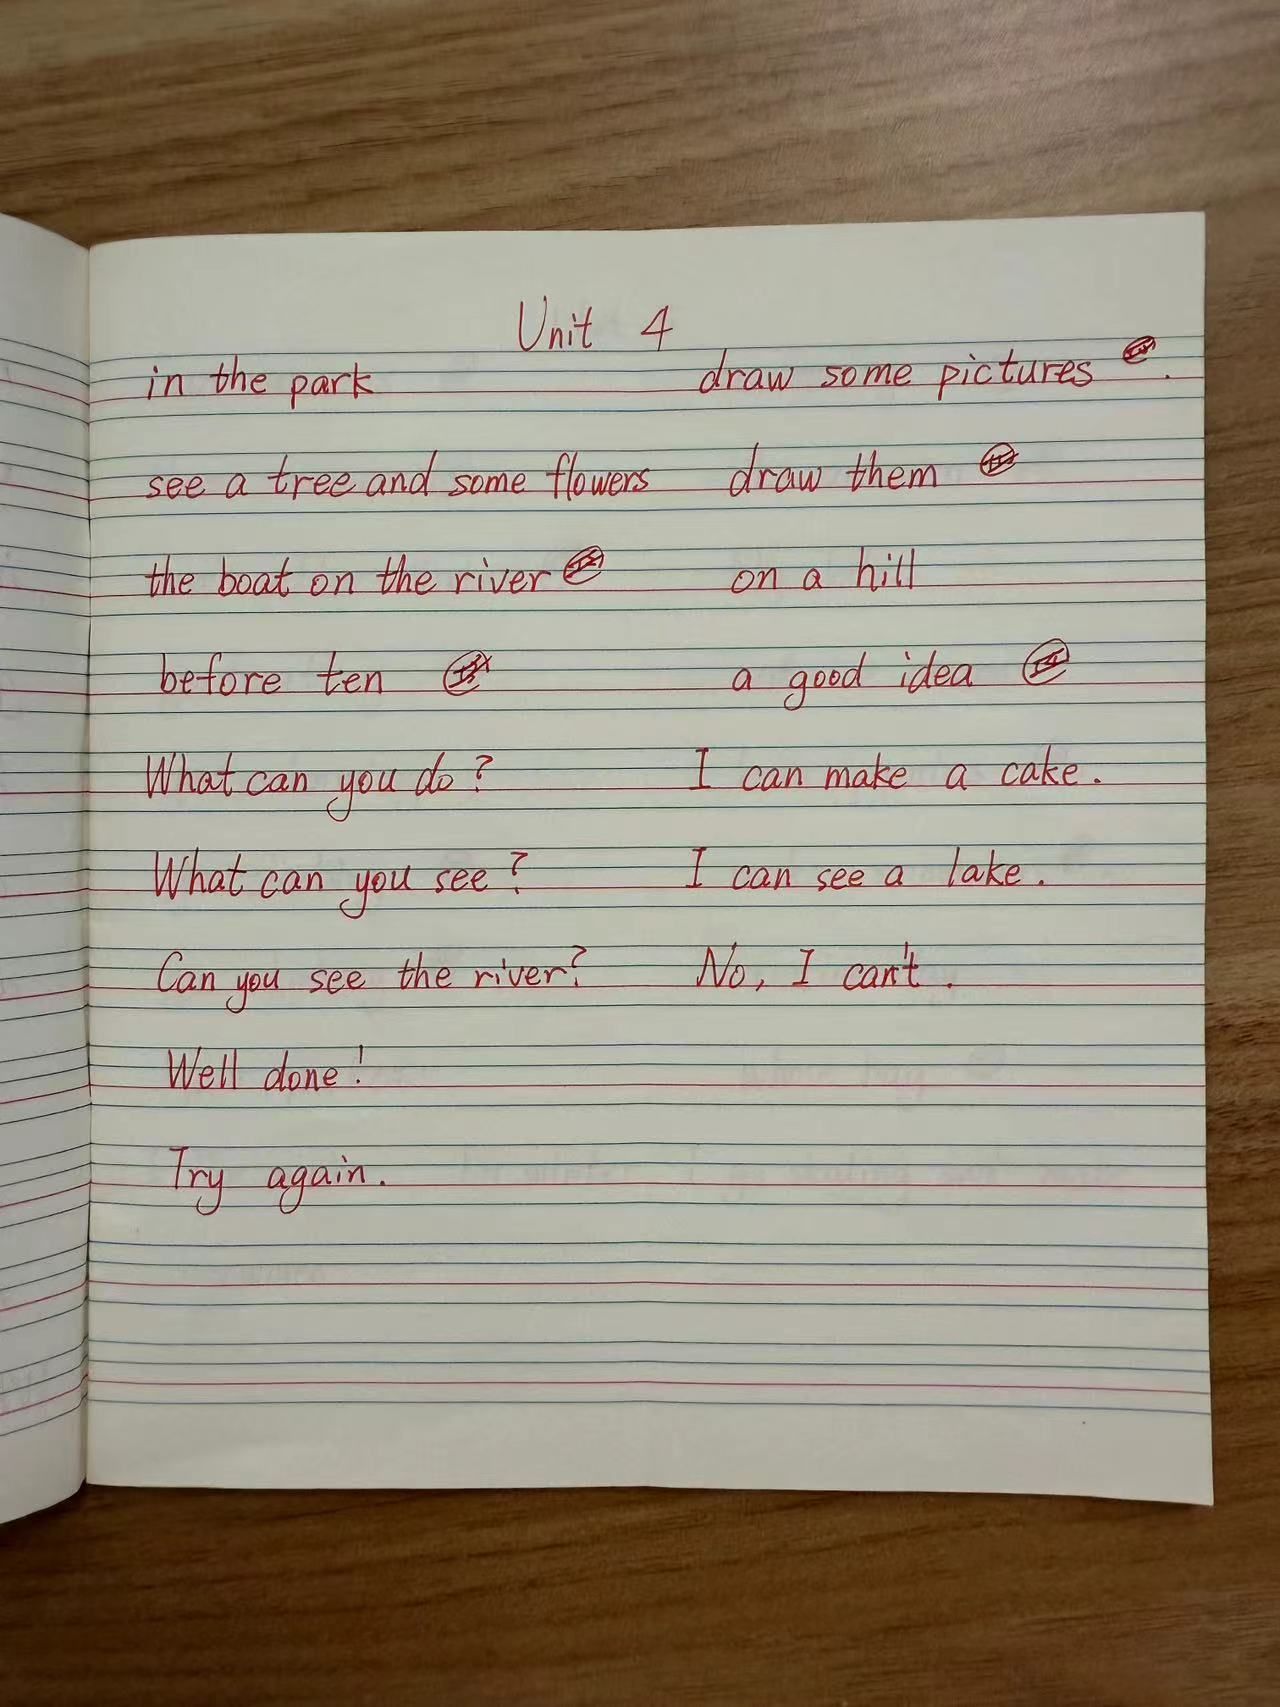 Unit 4
in the park draw some pictures .
see a tree and some flowers draw them
the boat on the river on a hill
before ten a good idea
What can you do? I can make a cake.
What can you see? I can see a lake.
Can you see the river? No, I can't.
Well done!
Try again.